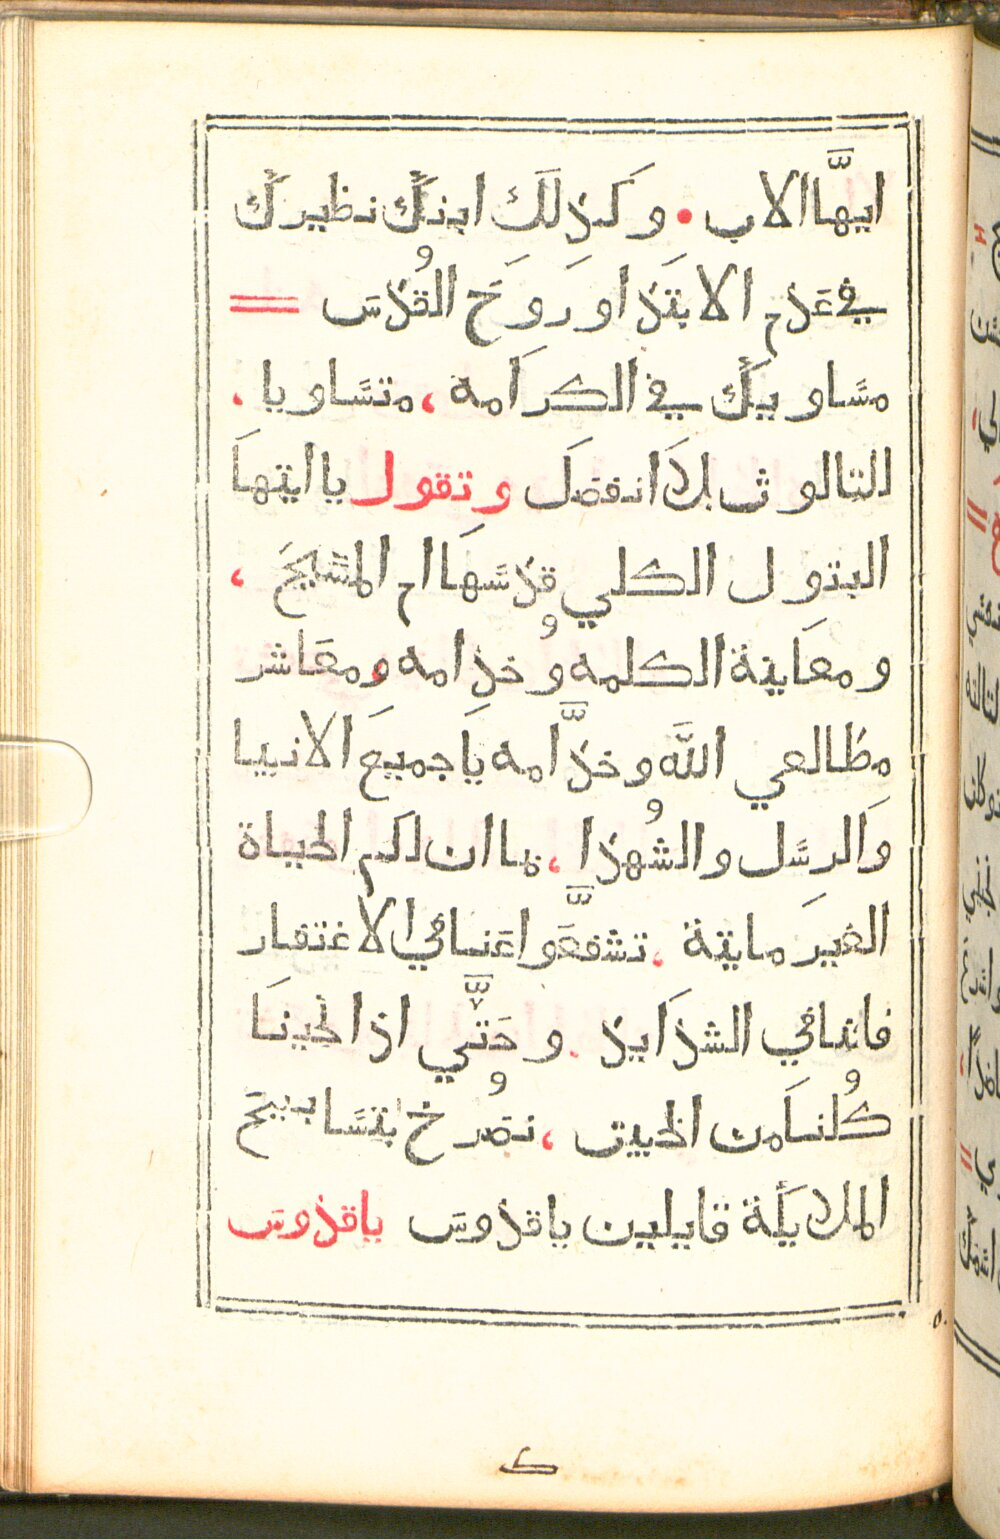 ايهَّا الاب • وكَذلَك ابنكَّ نظيركَّ
في عَدم الابتَدا وَروحَ القُدسَ
مسًاوييَك في الكرَامة ، متسًاويا ،
التالوث بلاَ انفصَل وتقول يا ايتهاَ
البتول الكلي قدسًهاَ ام المسًيحَ ،
ومعاَينة الكلمه وخدامه ومعَاشر
مظالعي اللَّه وخدَّامه ياَ جميعَ الانبيا
وَالرسًل والشهُدا ، بما ان لكم الحياة
الغيرَ مايتة ، تشفعَّوا عَنا في الاغتفار
فاننا في الشدَايد . وحَتَّي اذا نجينَا
كُلناَ من الخييث ، نصُرخ بتسًابيحَ
الملايَكة قايلين ياقدوسَ ياقدوسَ
ك